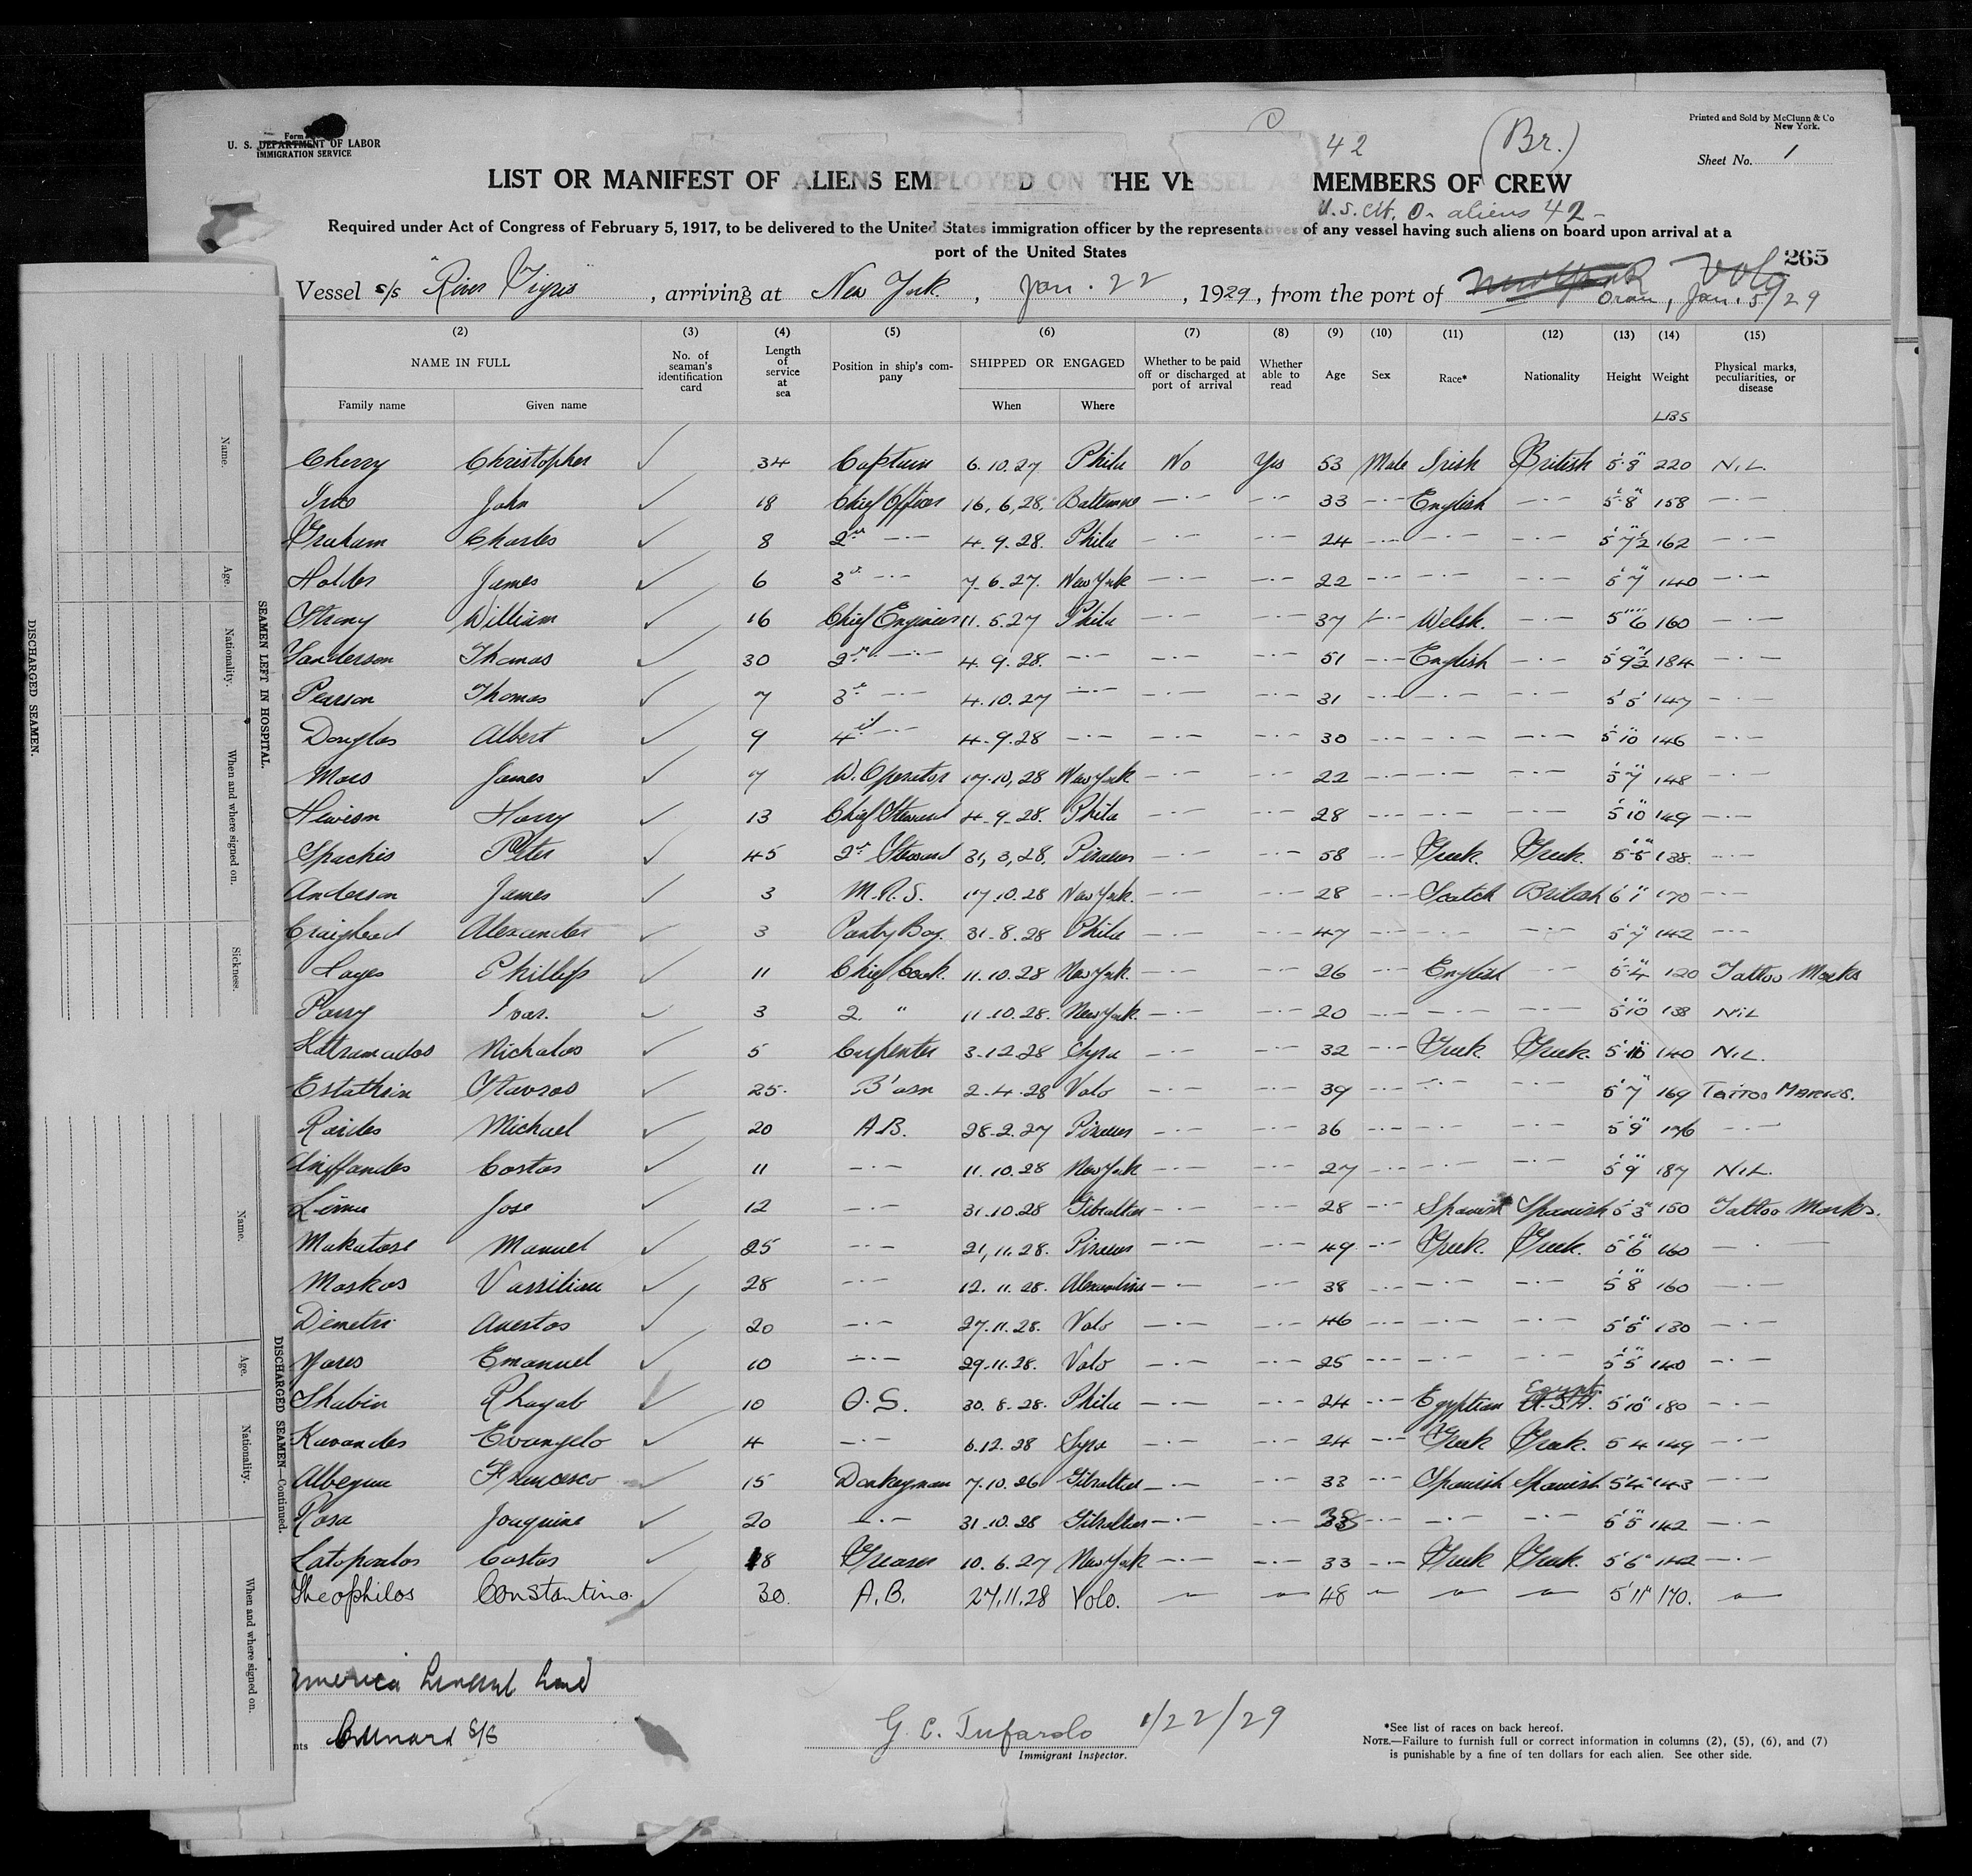 Form
U. S. DEPARTMENT OF LABOR
IMMIGRATION SERVICE
Printed and Sold by McClunn & Co
New York.
Sheet No. 1
42 (Br.)
LIST OR MANIFEST OF ALIENS EMPLOYED ON THE VESSEL AS MEMBERS OF CREW
U.S. Cit. 0- aliens 42-
Required under Act of Congress of February 5, 1917, to be delivered to the United States immigration officer by the representatives of any vessel having such aliens on board upon arrival at a
port of the United States
265
Vessel s/s "River Tigris", arriving at New York, Jan. 22, 1929, from the port of New York Volo
Oran, Jan. 5/29
(2) (3) (4) (5) (6) (7) (8) (9) (10) (11) (12) (13) (14) (15)
NAME IN FULL No. of seaman's identification card Length of service at sea Position in ship's company SHIPPED OR ENGAGED Whether to be paid off or discharged at port of arrival Whether able to read Age Sex Race* Nationality Height Weight Physical marks, peculiarities, or disease
Family name Given name When Where LBS
Cherry Christopher ✓ 34 Captain 6.10.27 Phila No Yes 53 Male Irish British 5'8" 220 NiL.
John ✓ 18 Chief Officer 16.6.28. Baltimore —·— —·— 33 —·— English —·— 5'8" 158 —·—
Graham Charles ✓ 8 2nd —·— 4.9.28. Phila —·— —·— 24 —·— —·— —·— 5'7½" 162 —·—
Holder James ✓ 6 3d —·— 7.6.27. New York —·— —·— 22 —·— —·— —·— 5'7" 140 —·—
Strang William ✓ 16 Chief Engineer 11.5.27 Phila —·— —·— 37 —·— Welsh. —·— 5'6" 160 —·—
Sanderson Thomas ✓ 30 2nd —·— 4.9.28. —·— —·— —·— 51 —·— English —·— 5'9½" 184 —·—
Pearson Thomas ✓ 7 3d —·— 4.10.27 —·— —·— —·— 31 —·— —·— —·— 5'5" 147 —·—
Douglas Albert ✓ 9 4th —·— 4.9.28 —·— —·— —·— 30 —·— —·— —·— 5'10" 146 —·—
James ✓ 7 W. Operator 17.10.28 New York —·— —·— 22 —·— —·— —·— 5'7" 148 —·—
Hewison Harry ✓ 13 Chief Steward 4.9.28. Phila —·— —·— 28 —·— —·— —·— 5'10" 149 —·—
Spachis Peter ✓ 45 2nd Steward 31.3.28. Piraeus —·— —·— 58 —·— Greek. Greek. 5'5" 138. —·—
Anderson James ✓ 3 M.R.S. 17.10.28 New York. —·— —·— 28 —·— Scotch British 6'1" 170 —·—
Craighead Alexander ✓ 3 Pantry Boy. 31.8.28 Phila —·— —·— 47 —·— —·— —·— 5'7" 142 —·—
Phillip ✓ 11 Chief Cook. 11.10.28 New York. —·— —·— 26 —·— English —·— 5'4" 120 Tattoo Marks
Parry Ivor. ✓ 3 2. " 11.10.28. New York. —·— —·— 20 —·— —·— —·— 5'10" 138 NiL
Nicholas ✓ 5 Carpenter 3.12.28 Syra —·— —·— 32 —·— Greek Greek. 140 NiL.
Estathiou Stavros ✓ 25. B'osn 2.4.28 Volo —·— —·— 39 —·— —·— —·— 5'7" 169 Tattoo Marks.
Raides Michael ✓ 20 A.B. 28.2.27 Piraeus —·— —·— 36 —·— —·— —·— 5'9" 176 —·—
Costas ✓ 11 —·— 11.10.28 New York —·— —·— 27 —·— —·— —·— 5'9" 187 NiL.
Jose ✓ 12 —·— 31.10.28 Gibraltar —·— —·— 28 —·— Spanish Spanish 5'3" 150 Tattoo Marks.
Manuel ✓ 25 —·— 21.11.28. Piraeus —·— —·— 49 —·— Greek. Greek. 5'6" 160 —·—
Moskos Vassiliou ✓ 28 —·— 12.11.28. Alexandria —·— —·— 38 —·— —·— —·— 5'8" 160 —·—
Demetri Avestos ✓ 20 —·— 27.11.28. Volo —·— —·— 46 —·— —·— —·— 5'5" 130 —·—
Emanuel ✓ 10 —·— 29.11.28. Volo —·— —·— 25 —·— —·— —·— 5'5" 140 —·—
Shabin Rhayab ✓ 10 O.S. 30.8.28. Phila —·— —·— 24 —·— Egyptian U.S.A. Egypt. 5'10" 180 —·—
Kavandes Evangelo ✓ 4 —·— 6.12.28 Syra —·— —·— 24 —·— Greek Greek. 5'4 149 —·—
Francesco ✓ 15 Donkeyman 7.10.26 Gibraltar —·— —·— 33 —·— Spanish Spanish 5'4" 143 —·—
Rosa Joaquine ✓ 20 —·— 31.10.28 Gibraltar —·— —·— 38 —·— —·— —·— 5'5" 142 —·—
Latopoulos Costas ✓ 18 Greaser 10.6.27 New York —·— —·— 33 —·— Greek Greek. 5'6" 142 —·—
Theophilos Constantino. ✓ 30. A.B. 27.11.28 Volo. —"— —"— 48 —"— —"— —"— 5'11" 170. —"—
Cunard S/S
G. C. Tufarolo 1/22/29
Immigrant Inspector.
*See list of races on back hereof.
NOTE.—Failure to furnish full or correct information in columns (2), (5), (6), and (7)
is punishable by a fine of ten dollars for each alien. See other side.
DISCHARGED SEAMEN.
SEAMEN LEFT IN HOSPITAL.
Name.
Age.
Nationality.
When and where signed on.
Sickness.
DISCHARGED SEAMEN—Continued.
Name.
Age.
Nationality.
When and where signed on.